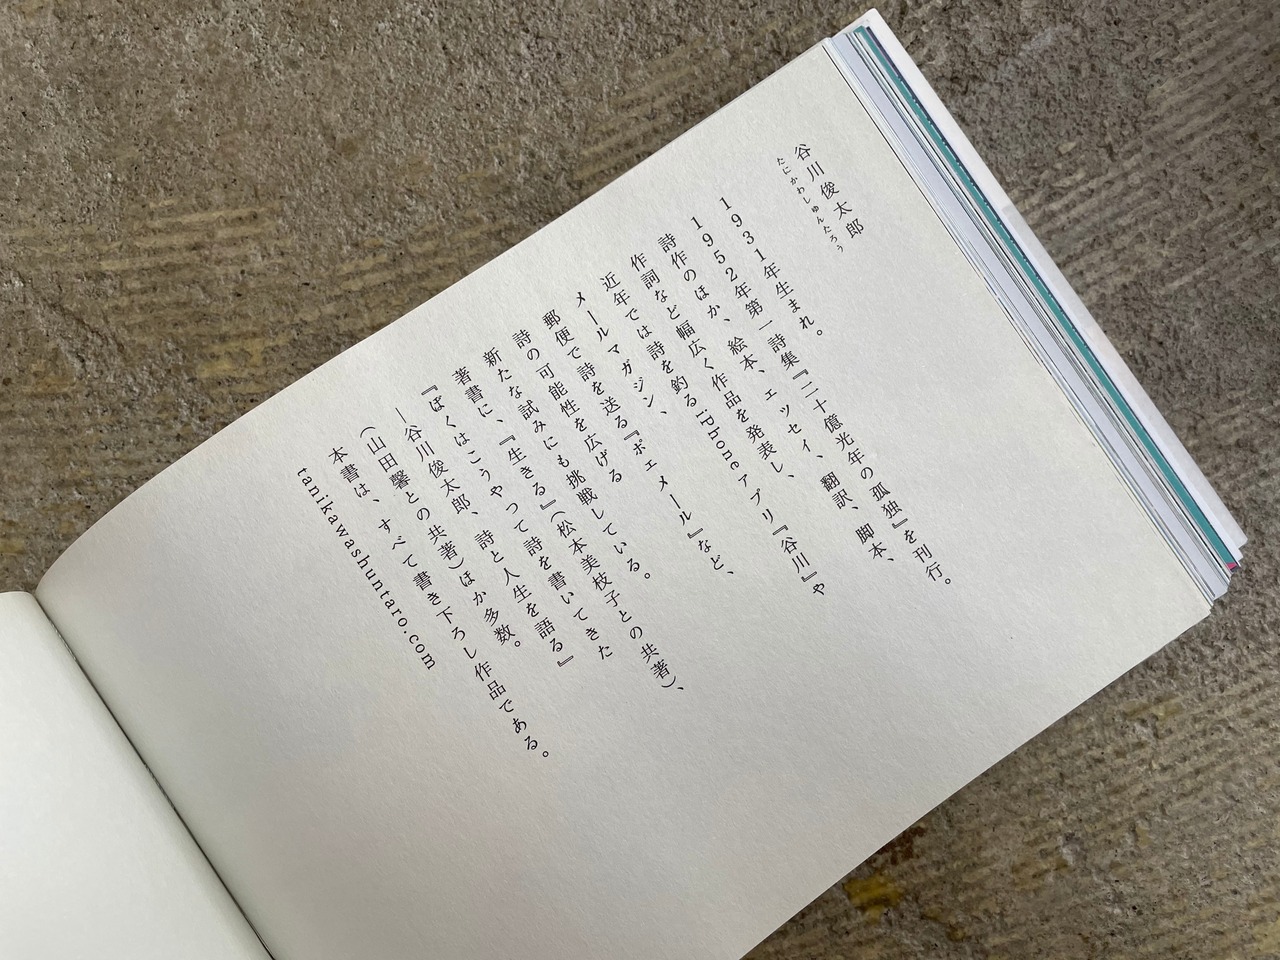 谷川俊太郎
たにかわしゅんたろう
1931年生まれ。
1952年第一詩集『二十億光年の孤独』を刊行。
詩作のほか、絵本、エッセイ、翻訳、脚本、
作詞など幅広く作品を発表し、
近年では詩を釣るiPhoneアプリ『谷川』や
メールマガジン、
郵便で詩を送る『ポエメール』など、
詩の可能性を広げる
新たな試みにも挑戦している。
著書に、『生きる』(松本美枝子との共著)、
『ぼくはこうやって詩を書いてきた
―谷川俊太郎、詩と人生を語る』
(山田馨との共著)ほか多数。
本書は、すべて書き下ろし作品である。
tanikawashuntaro.com